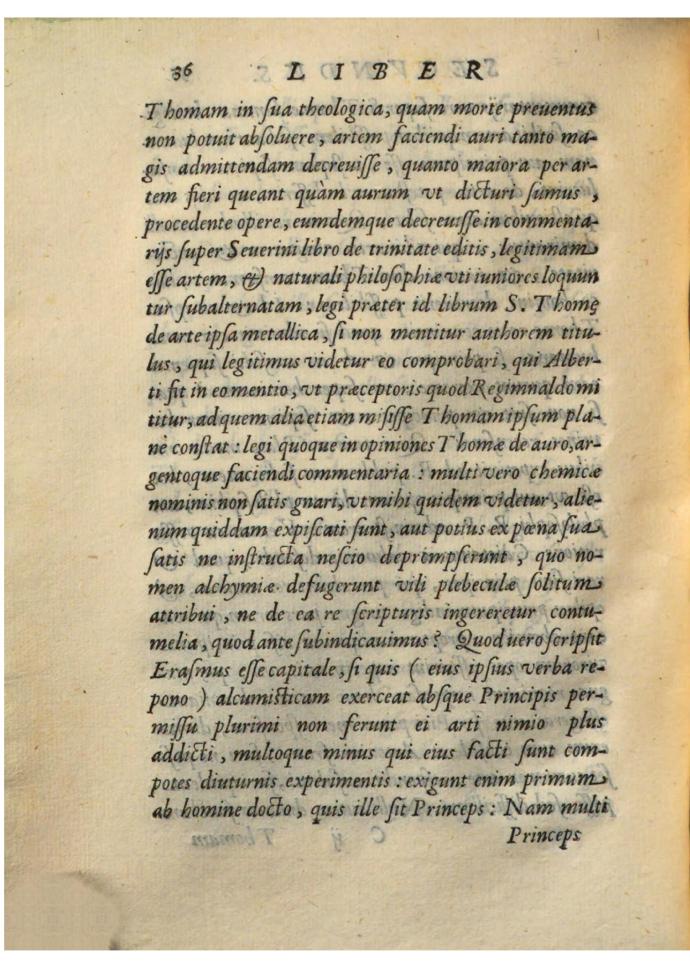 36 LIBER
Thomam in ſua theologica, quam morte preuentus
non potuit abſoluere, artem faciendi auri tanto ma-
gis admittendam decreuiſſe, quanto maiora per ar-
tem fieri queant quàm aurum vt dicturi ſumus,
procedente opere, eumdemque decreuiſſe in commenta-
rijs ſuper Seuerini libro de trinitate editis, legitimam
eſſe artem, & naturali philoſophiæ vti iuniores loquun
tur ſubalternatam, legi præter id librum S. Thomę
de arte ipſa metallica, ſi non mentitur authorem titu-
lus, qui legitimus videtur eo comprobari, qui Alber-
ti fit in eo mentio, vt præceptoris quod Regimnaldo mi
titur, ad quem alia etiam miſiſſe Thomam ipſum pla-
nè conſtat: legi quoque in opiniones Thomæ de auro, ar-
gentoque faciendi commentaria: multi vero chemicæ
nominis non ſatis gnari, vt mihi quidem videtur, alie-
num quiddam expiſcati ſunt, aut potius ex pœna ſua
ſatis ne inſtructa neſcio deprompſerunt, quo no-
men alchymiæ defugerunt vili plebeculæ ſolitum
attribui, ne de ea re ſcripturis ingereretur contu-
melia, quod ante ſubindicauimus? Quod uero ſcripſit
Eraſmus eſſe capitale, ſi quis ( eius ipſius verba re-
pono ) alcumiſticam exerceat abſque Principis per-
miſſu plurimi non ferunt ei arti nimio plus
addicti, multoque minus qui eius facti ſunt com-
potes diuturnis experimentis: exigunt enim primum
ab homine docto, quis ille ſit Princeps: Nam multi
Princeps